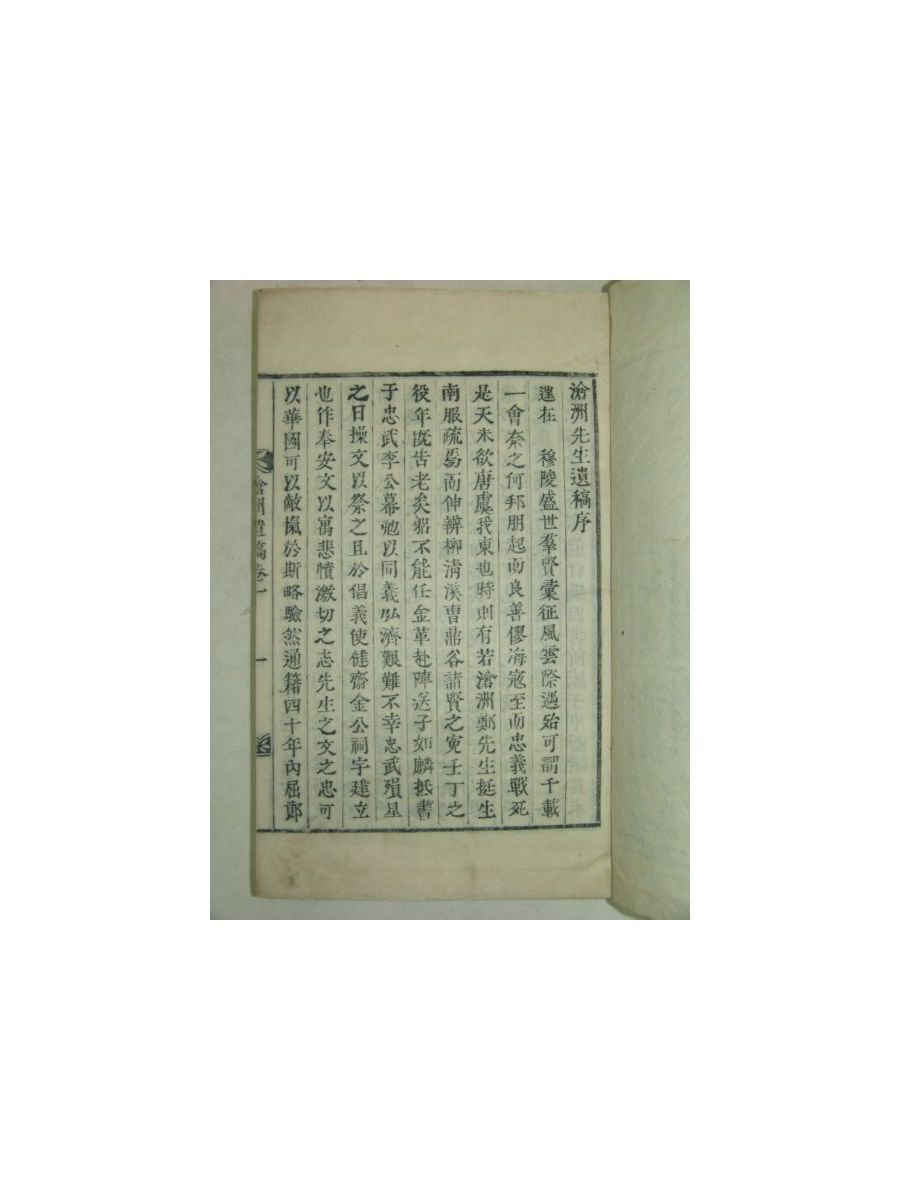 滄洲先生遺稿序
遑在 穆陵盛世羣賢彙征風雲際遇殆可謂千載
一會奈之何邦朋起而良善僇海寇至而忠義戰死
是天未欲唐虞我東也時則有若滄洲鄭先生挺生
南服疏焉而伸辨柳淸溪曹鼎谷諸賢之寃壬丁之
役年旣告老矣躬不能任金革赴陣送子如麟抵書
于忠武李公幕勉以同義弘濟艱難不幸忠武殞星
之日操文以祭之且於倡義使健齋金公祠宇建立
也作奉安文以寓悲憤激切之志先生之文之忠可
以華國可以敵愾於斯略驗然通籍四十年內屈郞
滄洲遺稿卷一 一